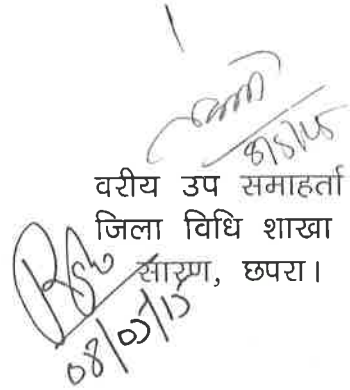 8/5/15
वरीय उप समाहर्ता
जिला विधि शाखा
सारण, छपरा।
08/05/15